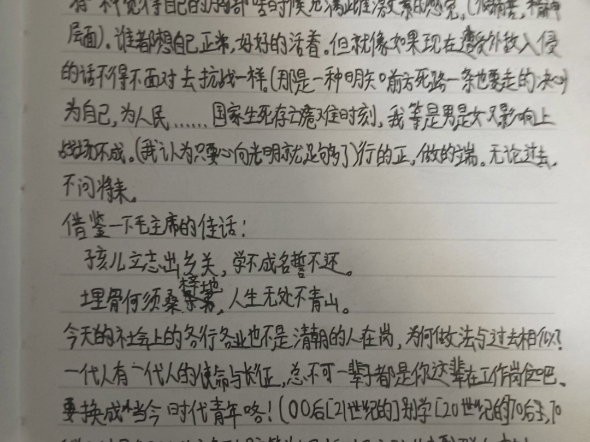 有一种觉得自己的胸部等时候充满雌激素的感觉。(
层面)。谁都想自己正常,好好的活着。但就像如果现在遭外敌入侵
的话不得不面对去抗战一样。(那是一种明知前方死路一条也要走的决心)
为自己,为人民......国家生死存亡危难时刻,我等是男是女又影响上
战场不成。(我认为只要心向光明就足够了)行的正,做的端。无论过去,
不问将来。
借鉴一下毛主席的佳话:
孩儿立志出乡关,学不成名誓不还。
埋骨何须桑梓地,人生无处不青山。
今天的社会上的各行各业也不是清朝的人在岗,为何做法与过去相似?
一代人有一代人的使命与长征,总不可一辈子都是你这辈在工作岗位吧、
要换成当今时代青年咯!(00后[21世纪的]别学[20世纪的70后、70